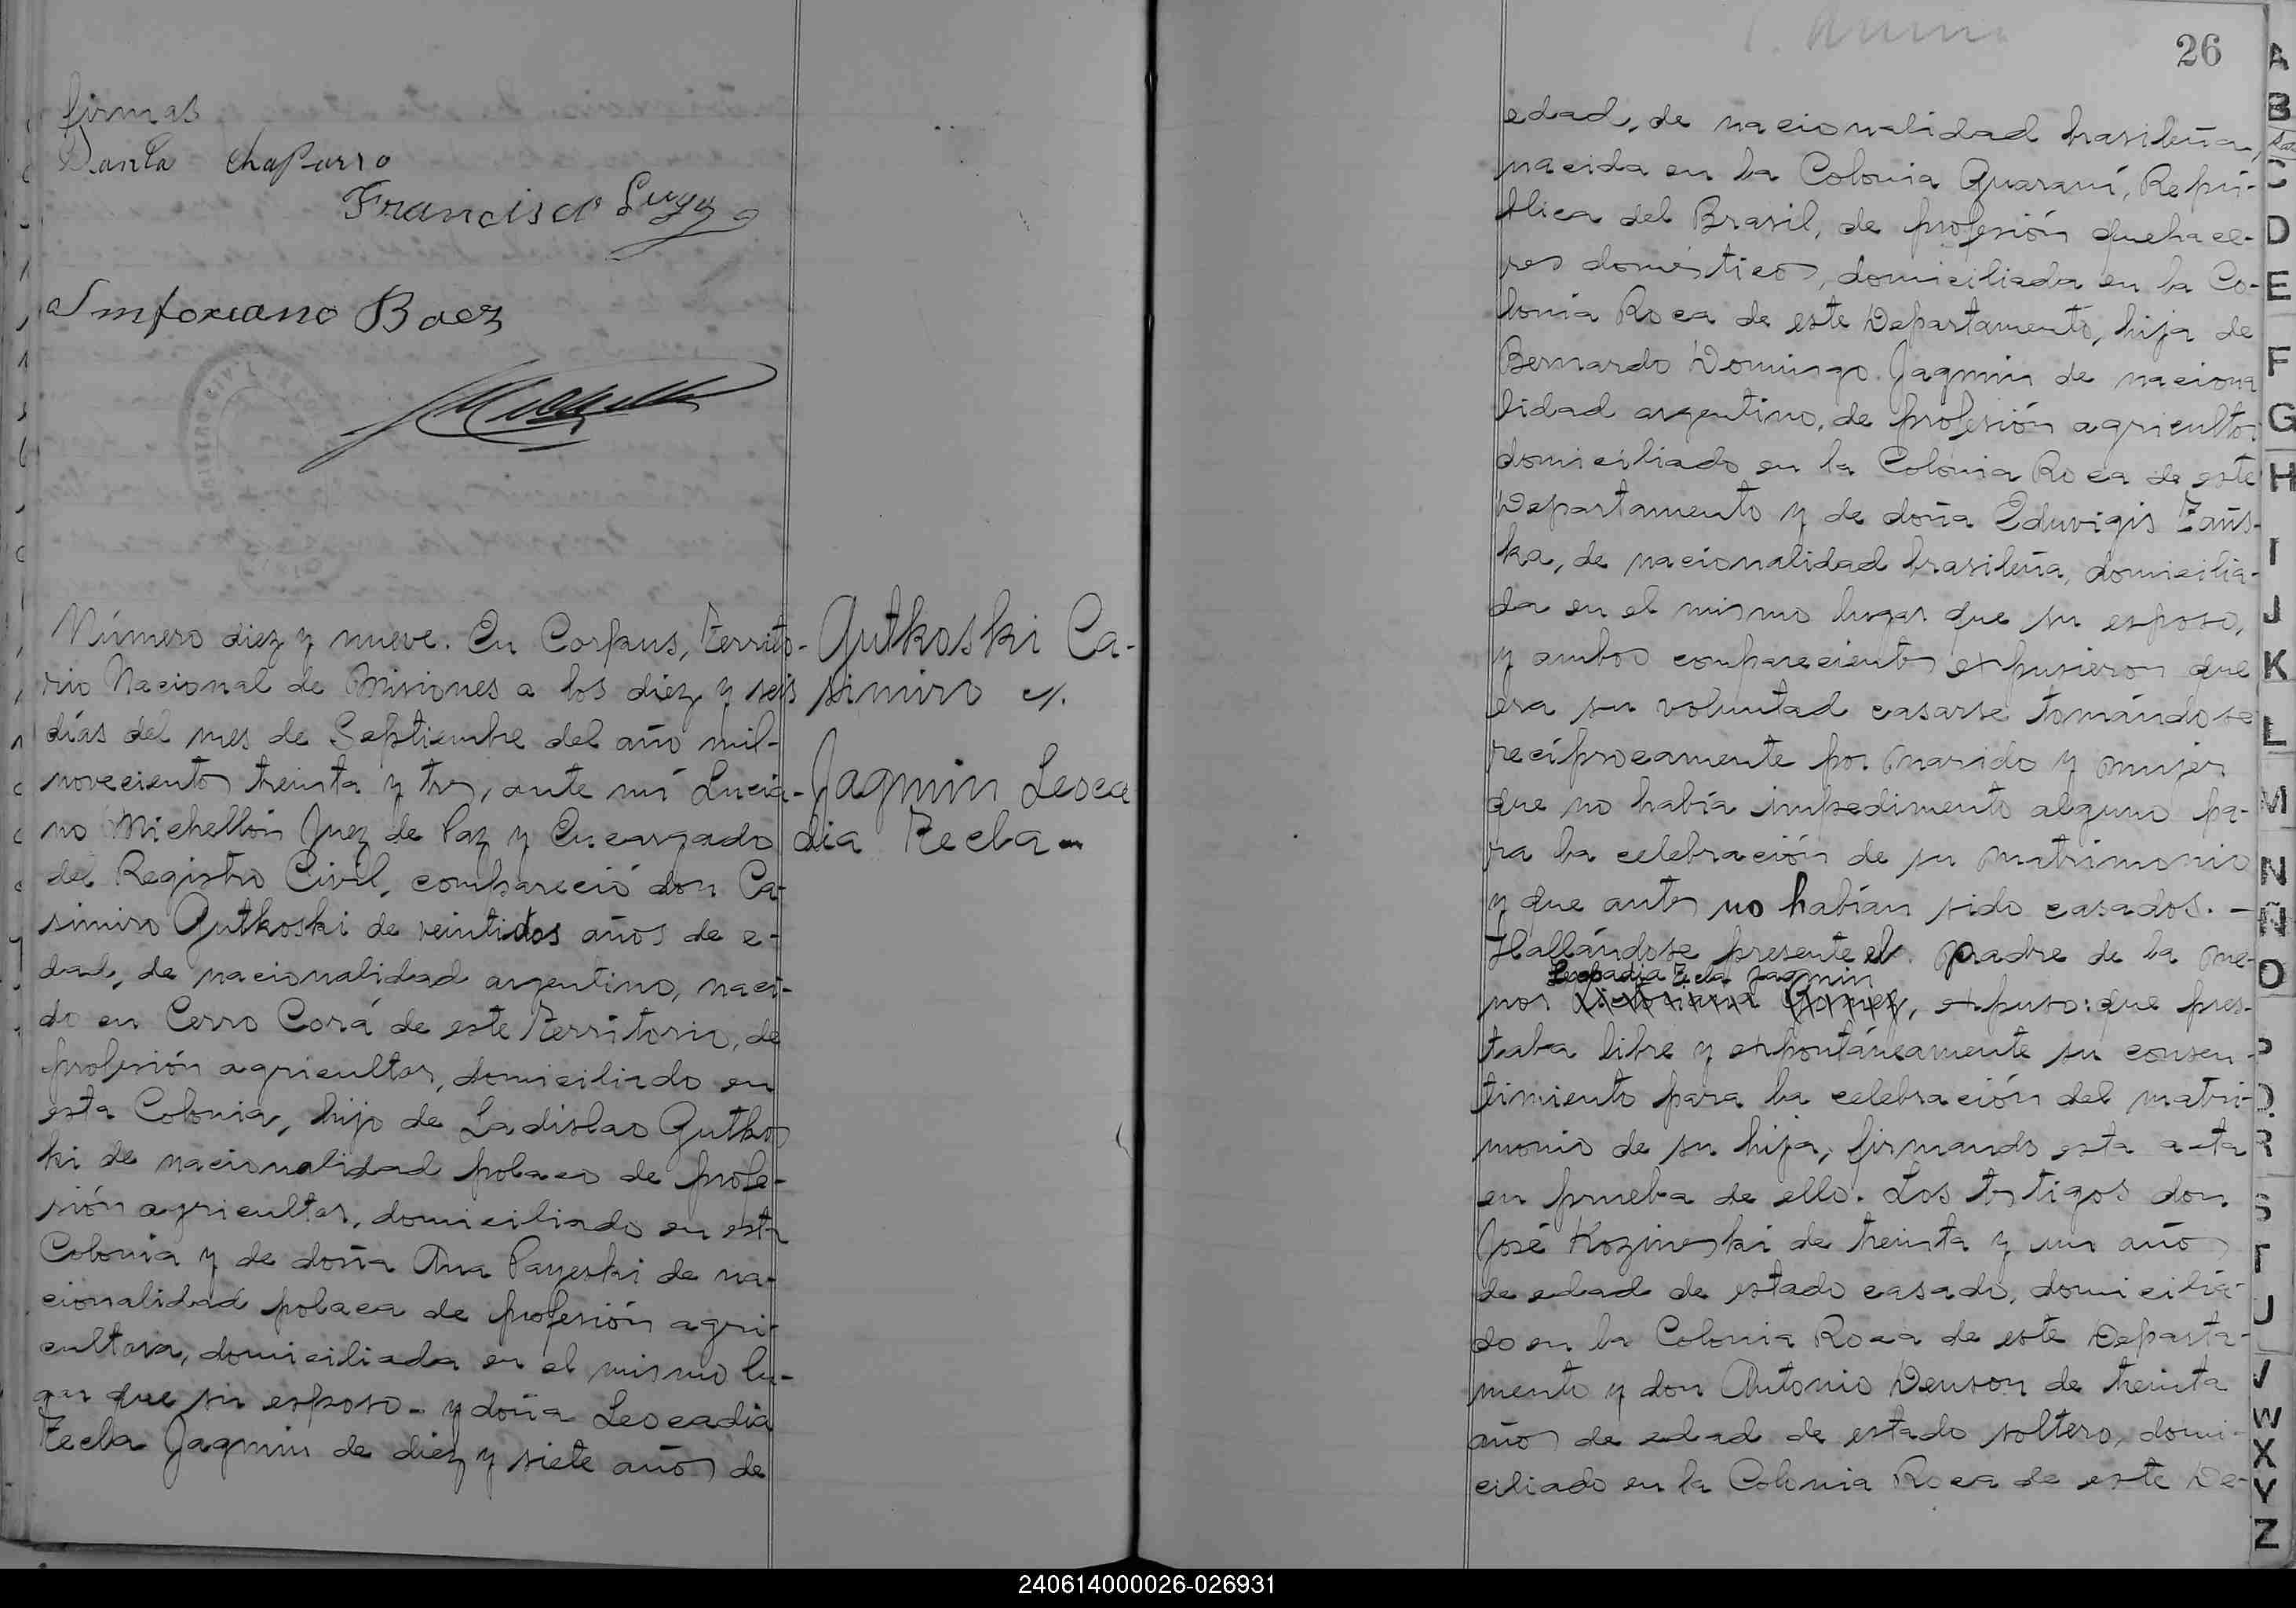 firmas
Chaparro
Francisco Lugo
Sinforiano Baez
Número diez y nueve. En Corpus, Territo-
rio Nacional de Misiones a los diez y seis
días del mes de Septiembre del año mil-
novecientos treinta y tres, ante mí Lucia-
no Michellón Juez de Paz y Encargado
del Registro Civil, compareció don Ca-
simiro Gutkoski de veintidos años de e-
dad, de nacionalidad argentino, naci-
do en Cerro Corá de este Territorio, de
profesión agricultor, domiciliado en
esta Colonia, hijo de Ladislao Gutkos
ki de nacionalidad polaco de profe-
sión agricultor, domiciliado en esta
Colonia y de doña Ana Payeski de na-
cionalidad polaca de profesión agri-
cultora, domiciliada en el mismo lu-
gar que su esposo - y doña Leocadia
Tecla Jagmin de diez y siete años de
Gutkoski Ca-
simiro c/.
Jagmin Leoca
dia Tecla -
26
edad, de nacionalidad brasileña,
nacida en la Colonia Guaraní, Repú-
blica del Brasil, de profesión quehace-
res domésticos, domiciliada en la Co-
lonia Roca de este Departamento, hija de
Bernardo Domingo Jagmin de naciona
lidad argentino, de profesión agricultor
domiciliado en la Colonia Roca de este
Departamento y de doña Eduvigis Zañs-
ka, de nacionalidad brasileña, domicilia-
da en el mismo lugar que su esposo,
y ambos comparecientes expusieron que
era su voluntad casarse tomándose
recíprocamente por marido y mujer
que no había impedimento alguno pa-
ra la celebración de su matrimonio
y que antes no habían sido casados. -
Hallándose presente el padre de la me-
Leocadia Tecla Jagmin
nor Gomez, expuso: que pres-
taba libre y expontáneamente su consen-
timiento para la celebración del matri-
monio de su hija, firmando esta acta
en prueba de ello. Los testigos don
José Kozineski de treinta y un años
de edad de estado casado, domicilia-
do en la Colonia Roca de este Departa-
mento y don Antonio Denson de treinta
años de edad de estado soltero, domi-
ciliado en la Colonia Roca de este De-
A
B
C
D
E
F
G
H
I
J
K
L
M
N
Ñ
O
P
Q
R
S
T
U
V
W
X
Y
Z
240614000026-026931